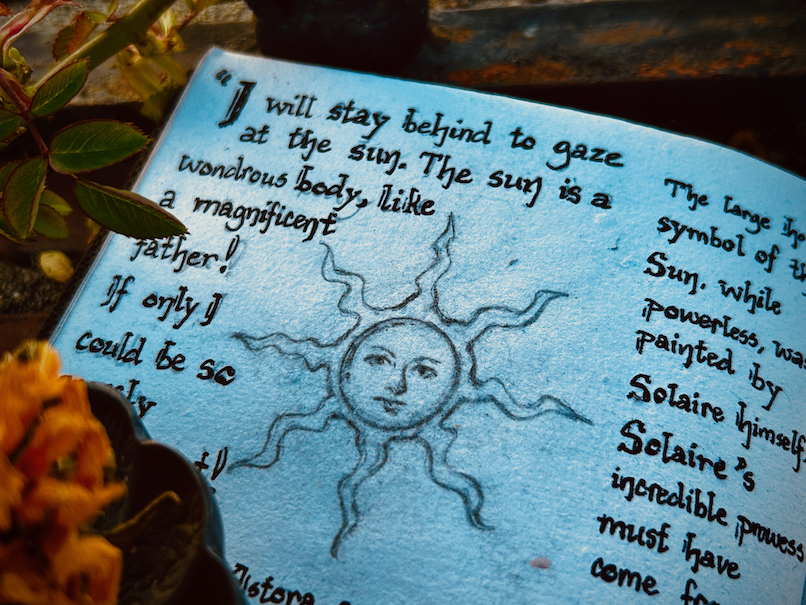 "I will stay behind to gaze
at the sun. The sun is a
wondrous body, like
a magnificent
father!
If only I
could be so
Astora
The large
symbol of
Sun. while
powerless, was
painted by
Solaire himself.
Solaire's
incredible prowess
must have
come